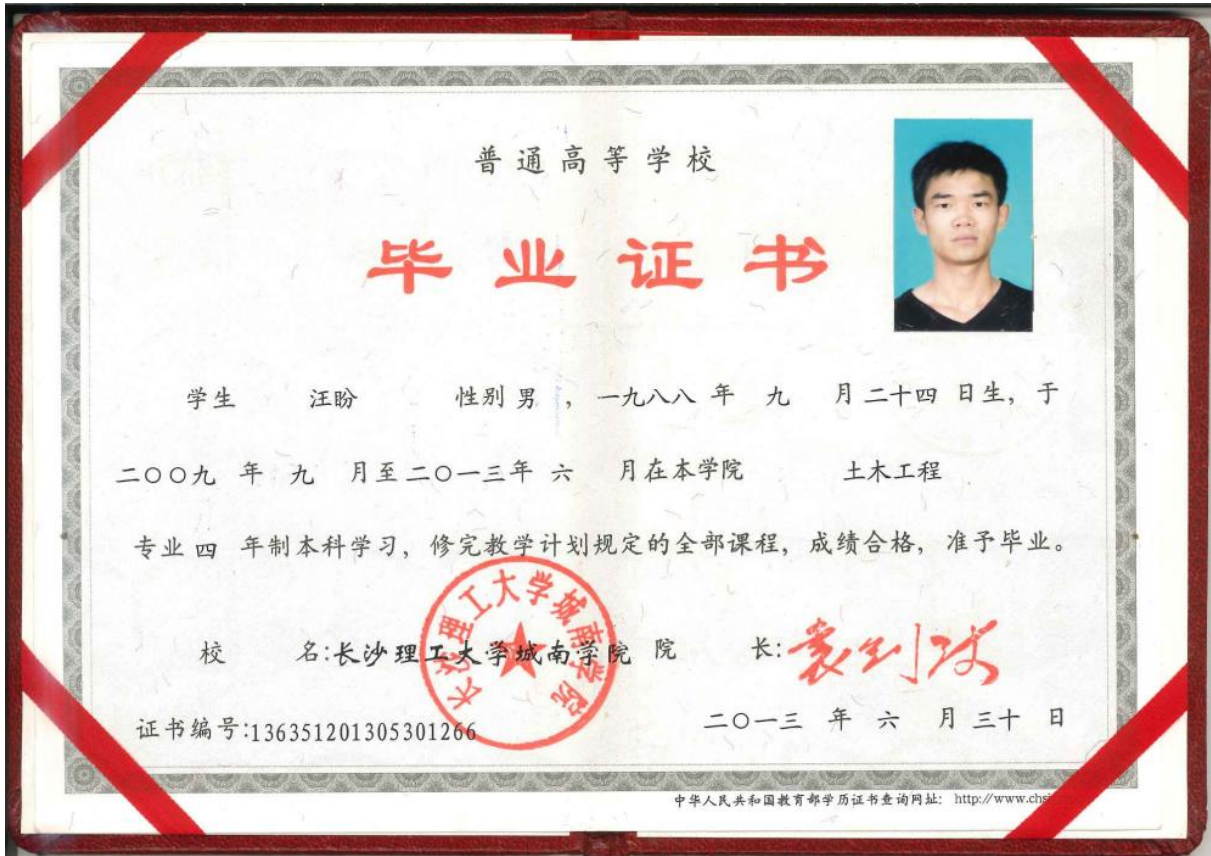 普通高等学校
毕业证书
学生 汪盼 性别 男 ，一九八八 年 九 月 二十四 日生，于
二〇〇九 年 九 月至 二〇一三年 六 月在本学院 土木工程
专业 四 年制本科学习，修完教学计划规定的全部课程，成绩合格，准予毕业。
长沙理工大学城南学院
校 名:长沙理工大学城南学院 院 长:
证书编号:136351201305301266
二〇一三 年 六 月 三十 日
中华人民共和国教育部学历证书查询网址: http://www.chs